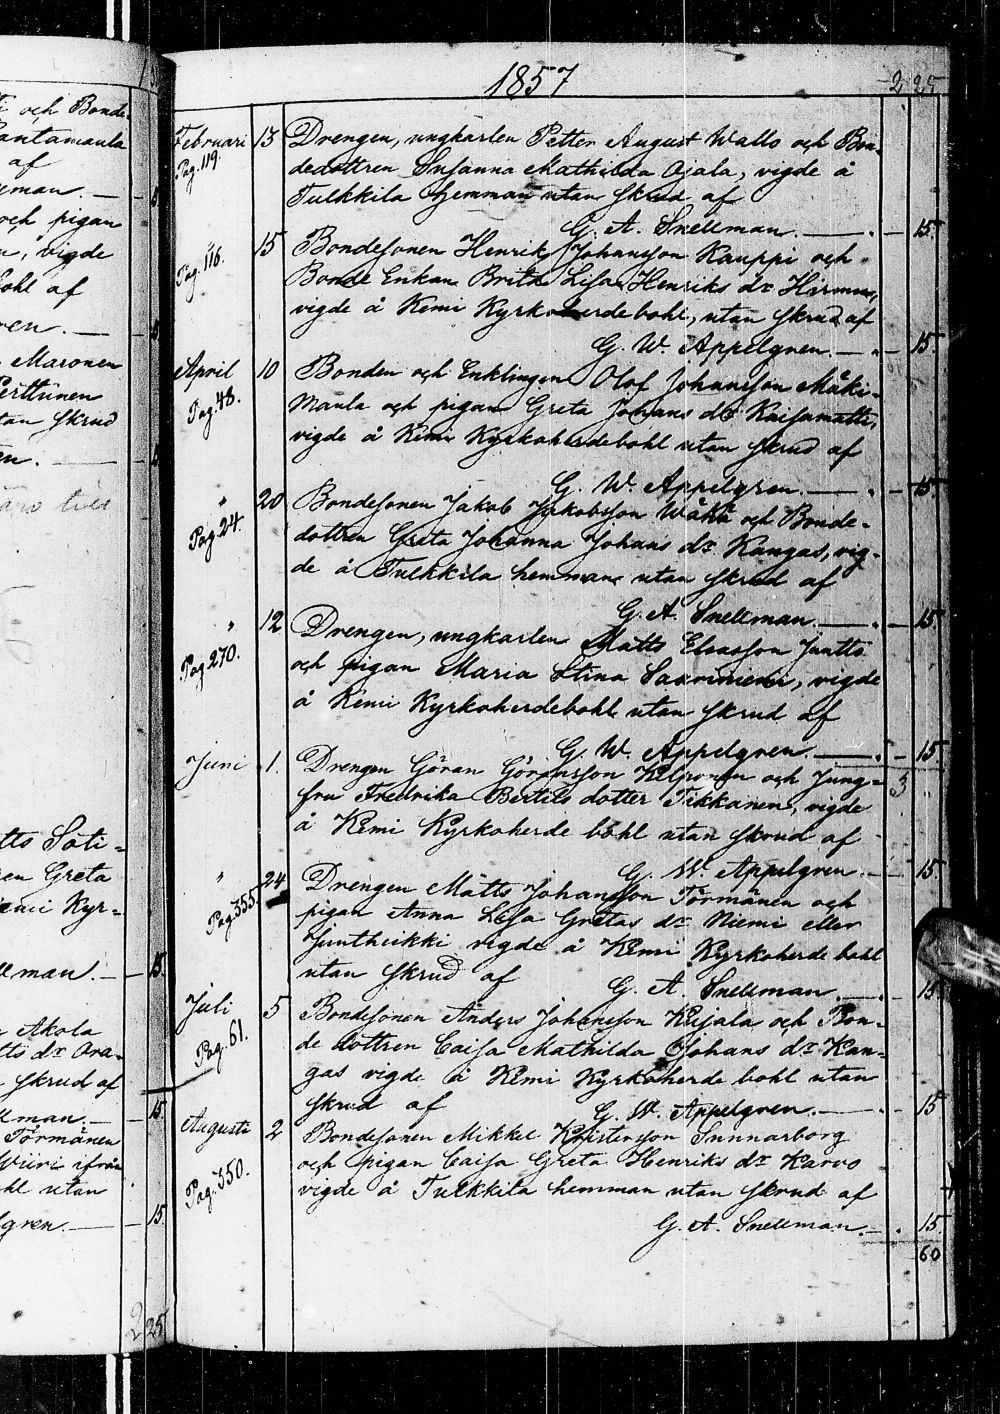 i och Bonde-
antamaula
af
eman. —
och pigan
n, vigde
ohl af
ren. —
Maronen
Perttunen
tan skrud
en. —
tts Soti-
en Greta
emi Kyr-
lman. — 15.
Akola
tts dr Ara-
skrud af
lman. — 15.
Törmänen
Wiiri ifrån
hl utan
lgren. — 15.
2 25
1857 2 25
Februari 13 Drengen, ungkarlen Petter August Wallo och Bon-
Pag. 119. dedottren Susanna Mathilda Ojala, vigde å
Tulkkila hemman utan skrud af
G. A. Snellman. — 15.
Pag. 116. 15 Bondesonen Henrik Johansson Kauppi och
Bonde Enkan Britha Lisa Henriks dr Hirmu,
vigde å Kemi Kyrkoherdebohl, utan skrud af
G. W. Appelgren. — 15.
April 10 Bonden och Enklingen Olof Johansson Mäki-
Pag. 48. maula och pigan Greta Johans dr Kaisamatti,
vigde å Kemi Kyrkoherdebohl utan skrud af
G. W. Appelgren. — 15.
" 20 Bondesonen Jakob Jakobsson Wähä och Bonde-
Pag. 24. dottren Greta Johanna Johans dr Kangas, vig-
de å Tulkkila hemman utan skrud af
G. A. Snellman. — 15.
" 12 Drengen, ungkarlen Matts Eliasson Juntto
Pag. 270. och pigan Maria Stina Saariniemi, vigde
å Kemi Kyrkoherdebohl utan skrud af
G. W. Appelgren. — 15.
Juni 1. Drengen Göran Göransson Kilponen och Jung- 3
fru Fredrika Bertils dotter Tikkanen, vigde
å Kemi Kyrkoherde bohl utan skrud af
G. W. Appelgren. — 15.
" 24 Drengen Matts Johansson Törmänen och
Pag. 355 pigan Anna Lisa Gretas dr Niemi eller
Juntheikki vigde å Kemi Kyrkoherde bohl
utan skrud af G. A. Snellman. — 15.
Juli 5 Bondesonen Anders Johansson Kujala och Bon-
Pag. 61. de dottren Caisa Mathilda Johans dr Kan-
gas vigde å Kemi Kyrkoherde bohl utan
skrud af G. W. Appelgren. — 15
Augusti 2 Bondesonen Mikkel Kristersson Sunnarborg
Pag. 350. och pigan Caisa Greta Henriks dr Karvo
vigde å Tulkkila hemman utan skrud af
G. A. Snellman. — 15.
60